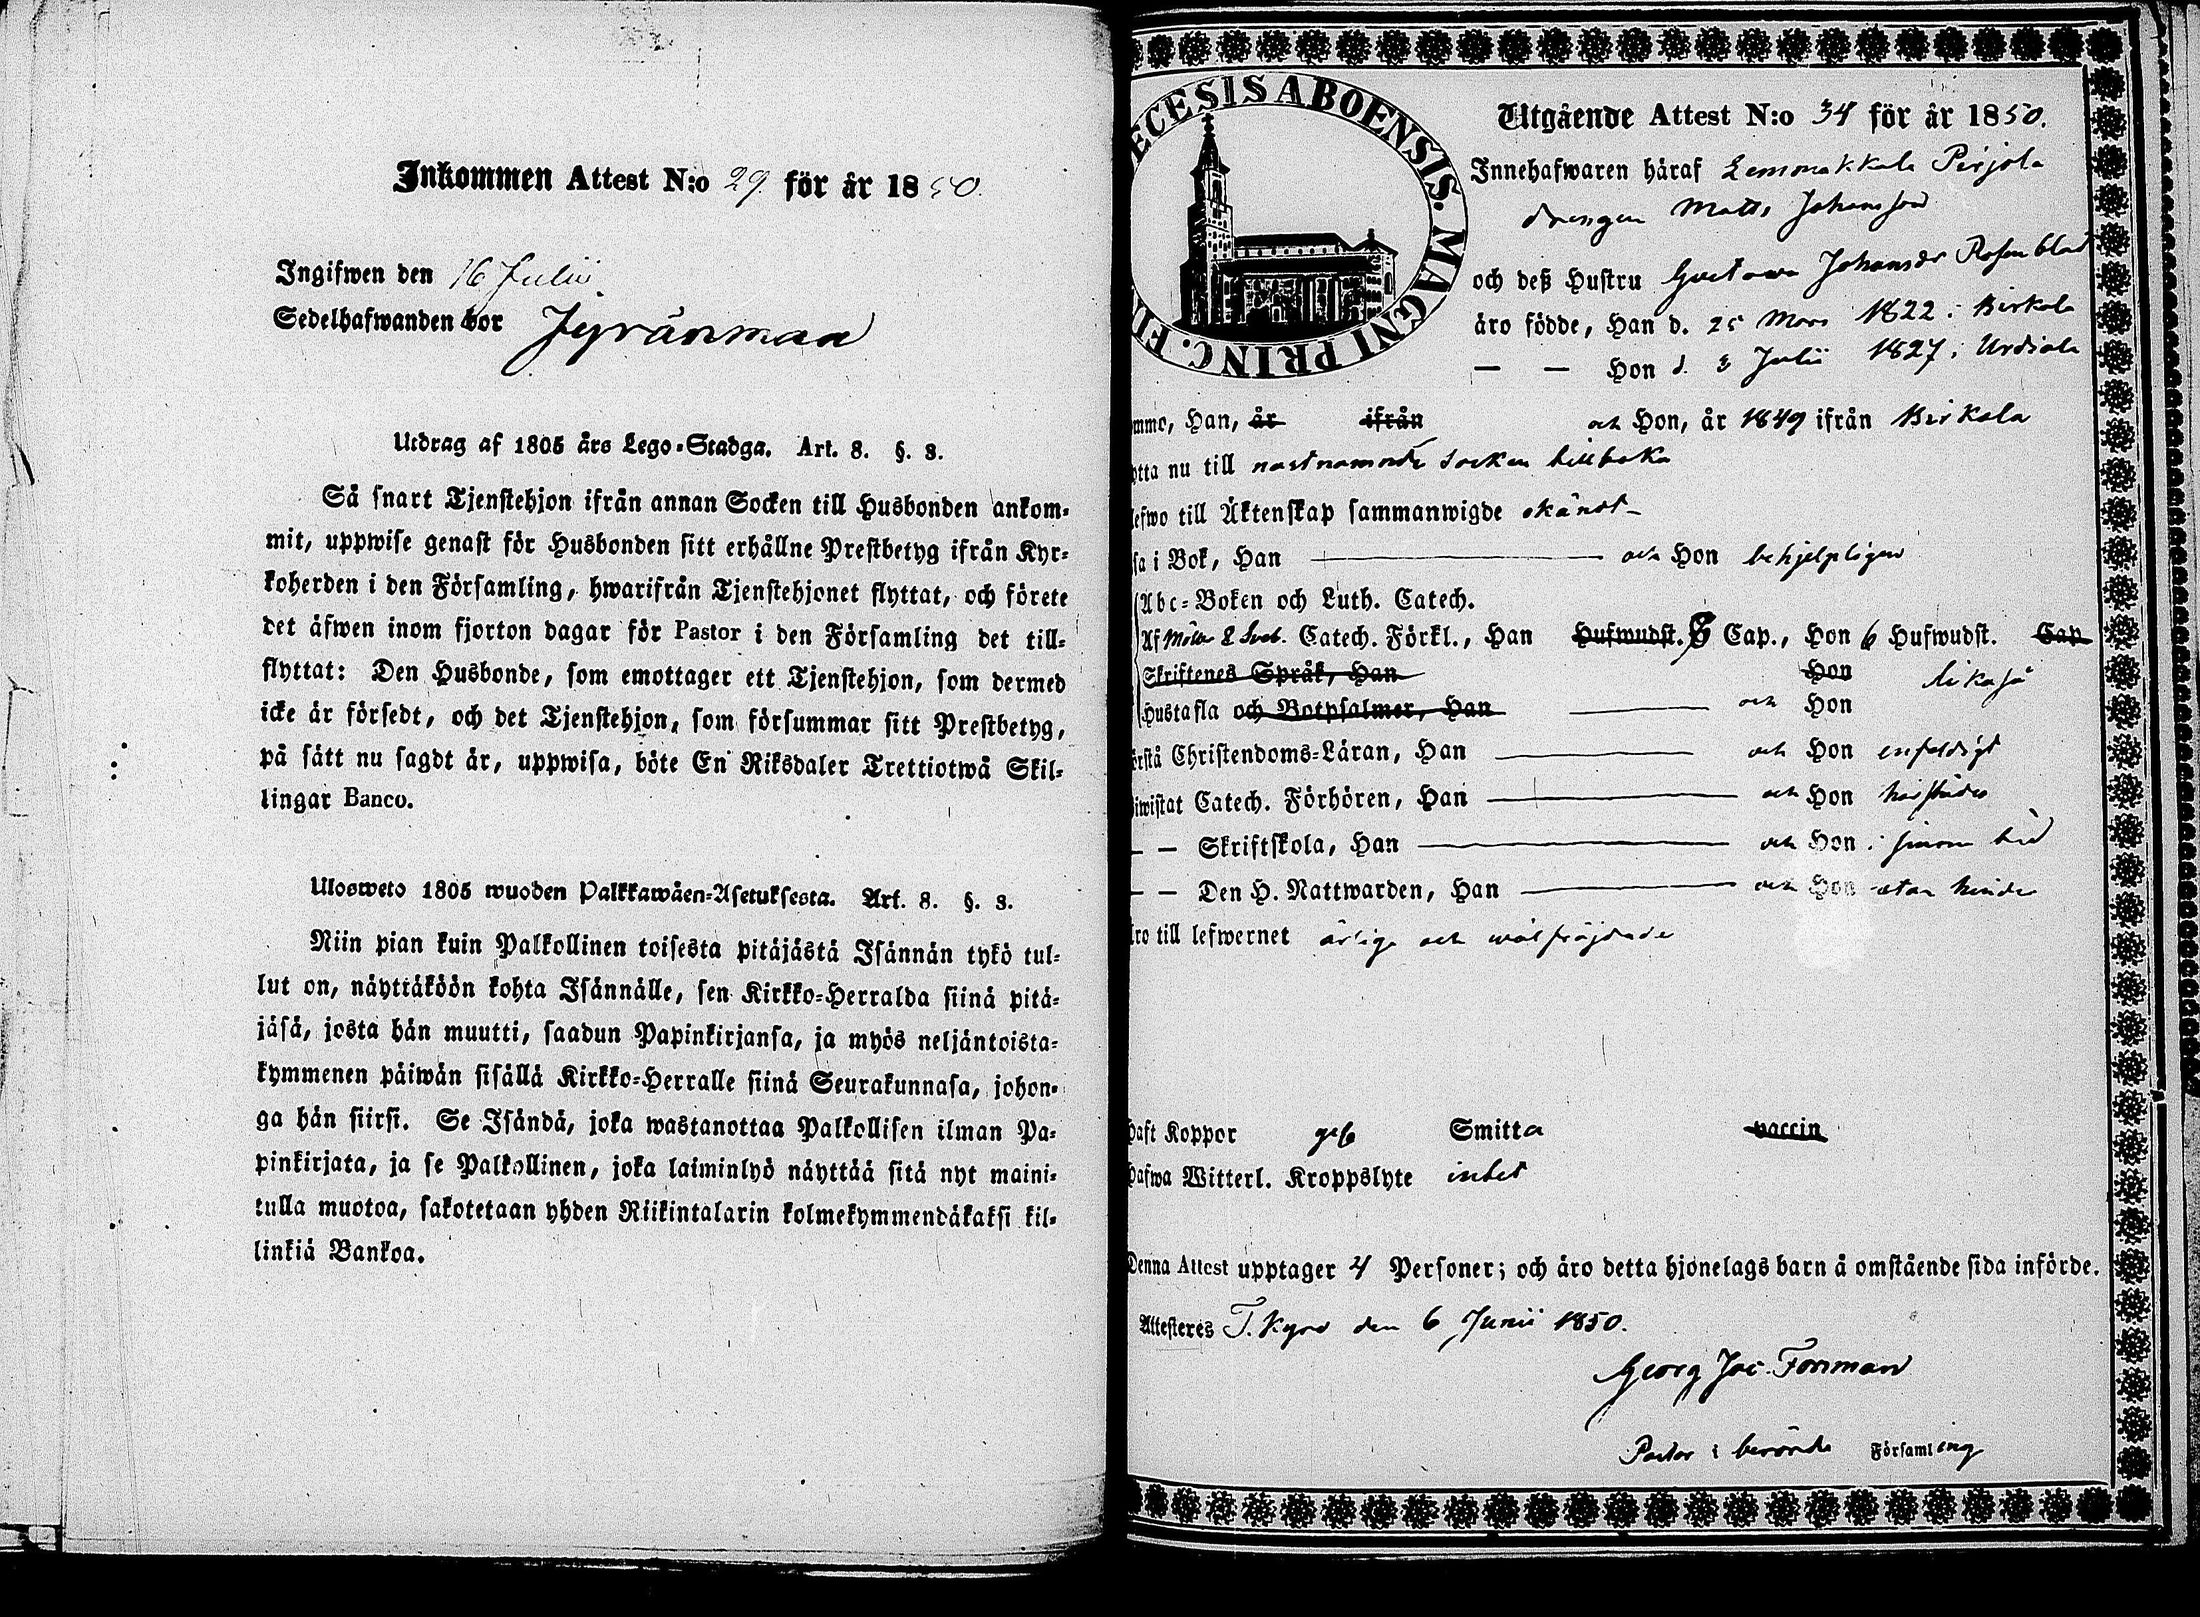 Inkommen Attest N:o 29. för år 1850.
Ingifwen den 16 Julii
Sedelhafwanden bor Jyränmaa
Utdrag af 1805 års Lego-Stadga. Art. 8. §. 3.
Så snart Tjenstehjon ifrån annan Socken till Husbonden ankom-
mit, uppwise genast för Husbonden sitt erhållne Prestbetyg ifrån Kyr-
koherden i den Församling, hwarifrån Tjenstehjonet flyttat, och förete
det äfwen inom fjorton dagar för Pastor i den Församling det till-
flyttat: Den Husbonde, som emottager ett Tjenstehjon, som dermed
icke är försedt, och det Tjenstehjon, som försummar sitt Prestbetyg,
på sätt nu sagdt är, uppwisa, böte En Riksdaler Trettiotwå Skil-
lingar Banco.
Ulosweto 1805 wuoden Palkkawäen-Asetuksesta. Art. 8. §. 3.
Niin pian kuin Palkollinen toisesta pitäjästä Isännän tykö tul-
lut on, näyttäköön kohta Isännälle, sen Kirkko-Herralda siinä pitä-
jäsä, josta hän muutti, saadun Papinkirjansa, ja myös neljäntoista-
kymmenen päiwän sisällä Kirkko-Herralle siinä Seurakunnasa, johon-
ga hän siirsi. Se Isändä, joka wastanottaa Palkollisen ilman Pa-
pinkirjata, ja se Palkollinen, joka laiminlyö näyttää sitä nyt maini-
tulla muotoa, sakotetaan yhden Riikintalarin kolmekymmendäkaksi kil-
linkiä Bankoa.
ECESIS ABOENSIS. MAGNI PRINC. FI
Utgående Attest N:o 34 för år 1850.
Innehafwaren häraf Lemmakkala Perjola
drengen Matts Johansson
och deß Hustru Gustawa Johansdr Rosenblad
äro födde, Han d. 25 Mars 1822 i Birkala
— — Hon d. 3 Julii 1827 i Urdiala
mmo, Han, år ifrån och Hon, år 1849 ifrån Birkala
ytta nu till nastnamnde Socken tillbaka
efwo till Äktenskap sammanwigde okändt
sa i Bok, Han och Hon behjelpligen
Abc-Boken och Luth. Catech.
Af Möller & Sveb. Catech. Förkl., Han Hufwudst. 6 Cap., Hon 6 Hufwudst. Cap
Skriftenes Språk, Han Hon likaså
Hustafla och Botpsalmer, Han och Hon
rstå Christendoms-Läran, Han och Hon enfaldigt
iwistat Catech. Förhören, Han och Hon
— — Skriftskola, Han och Hon i sinom tid
— — Den H. Nattwarden, Han och Hon utan hinder
ro till lefwernet ärlige och wälfräjdade
haft Koppor Smitta vaccin
hafwa Witterl. Kroppslyte intet
Denna Attest upptager 4 Personer; och äro detta hjonelags barn å omstående sida införde.
Attesteres T. Kyro den 6 Junii 1850.
Georg Jac. Forsman
Pastor i berörde Församling